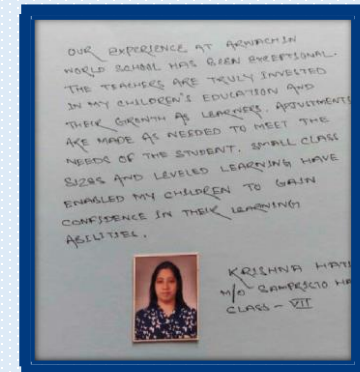 OUR EXPERIENCE AT ARWACHIN
WORLD SCHOOL HAS BEEN EXCEPTIONAL.
THE TEACHERS ARE TRULY INVESTED
IN MY CHILDREN'S EDUCATION AND
THEIR GROWTH AS LEARNERS. ADJUSTMENTS
ARE MADE AS NEEDED TO MEET THE
NEEDS OF THE STUDENT. SMALL CLASS
SIZES AND LEVELED LEARNING HAVE
ENABLED MY CHILDREN TO GAIN
CONFIDENCE IN THEIR LEARNING
ABILITIES.
KRISHNA
M/O
CLASS - VII